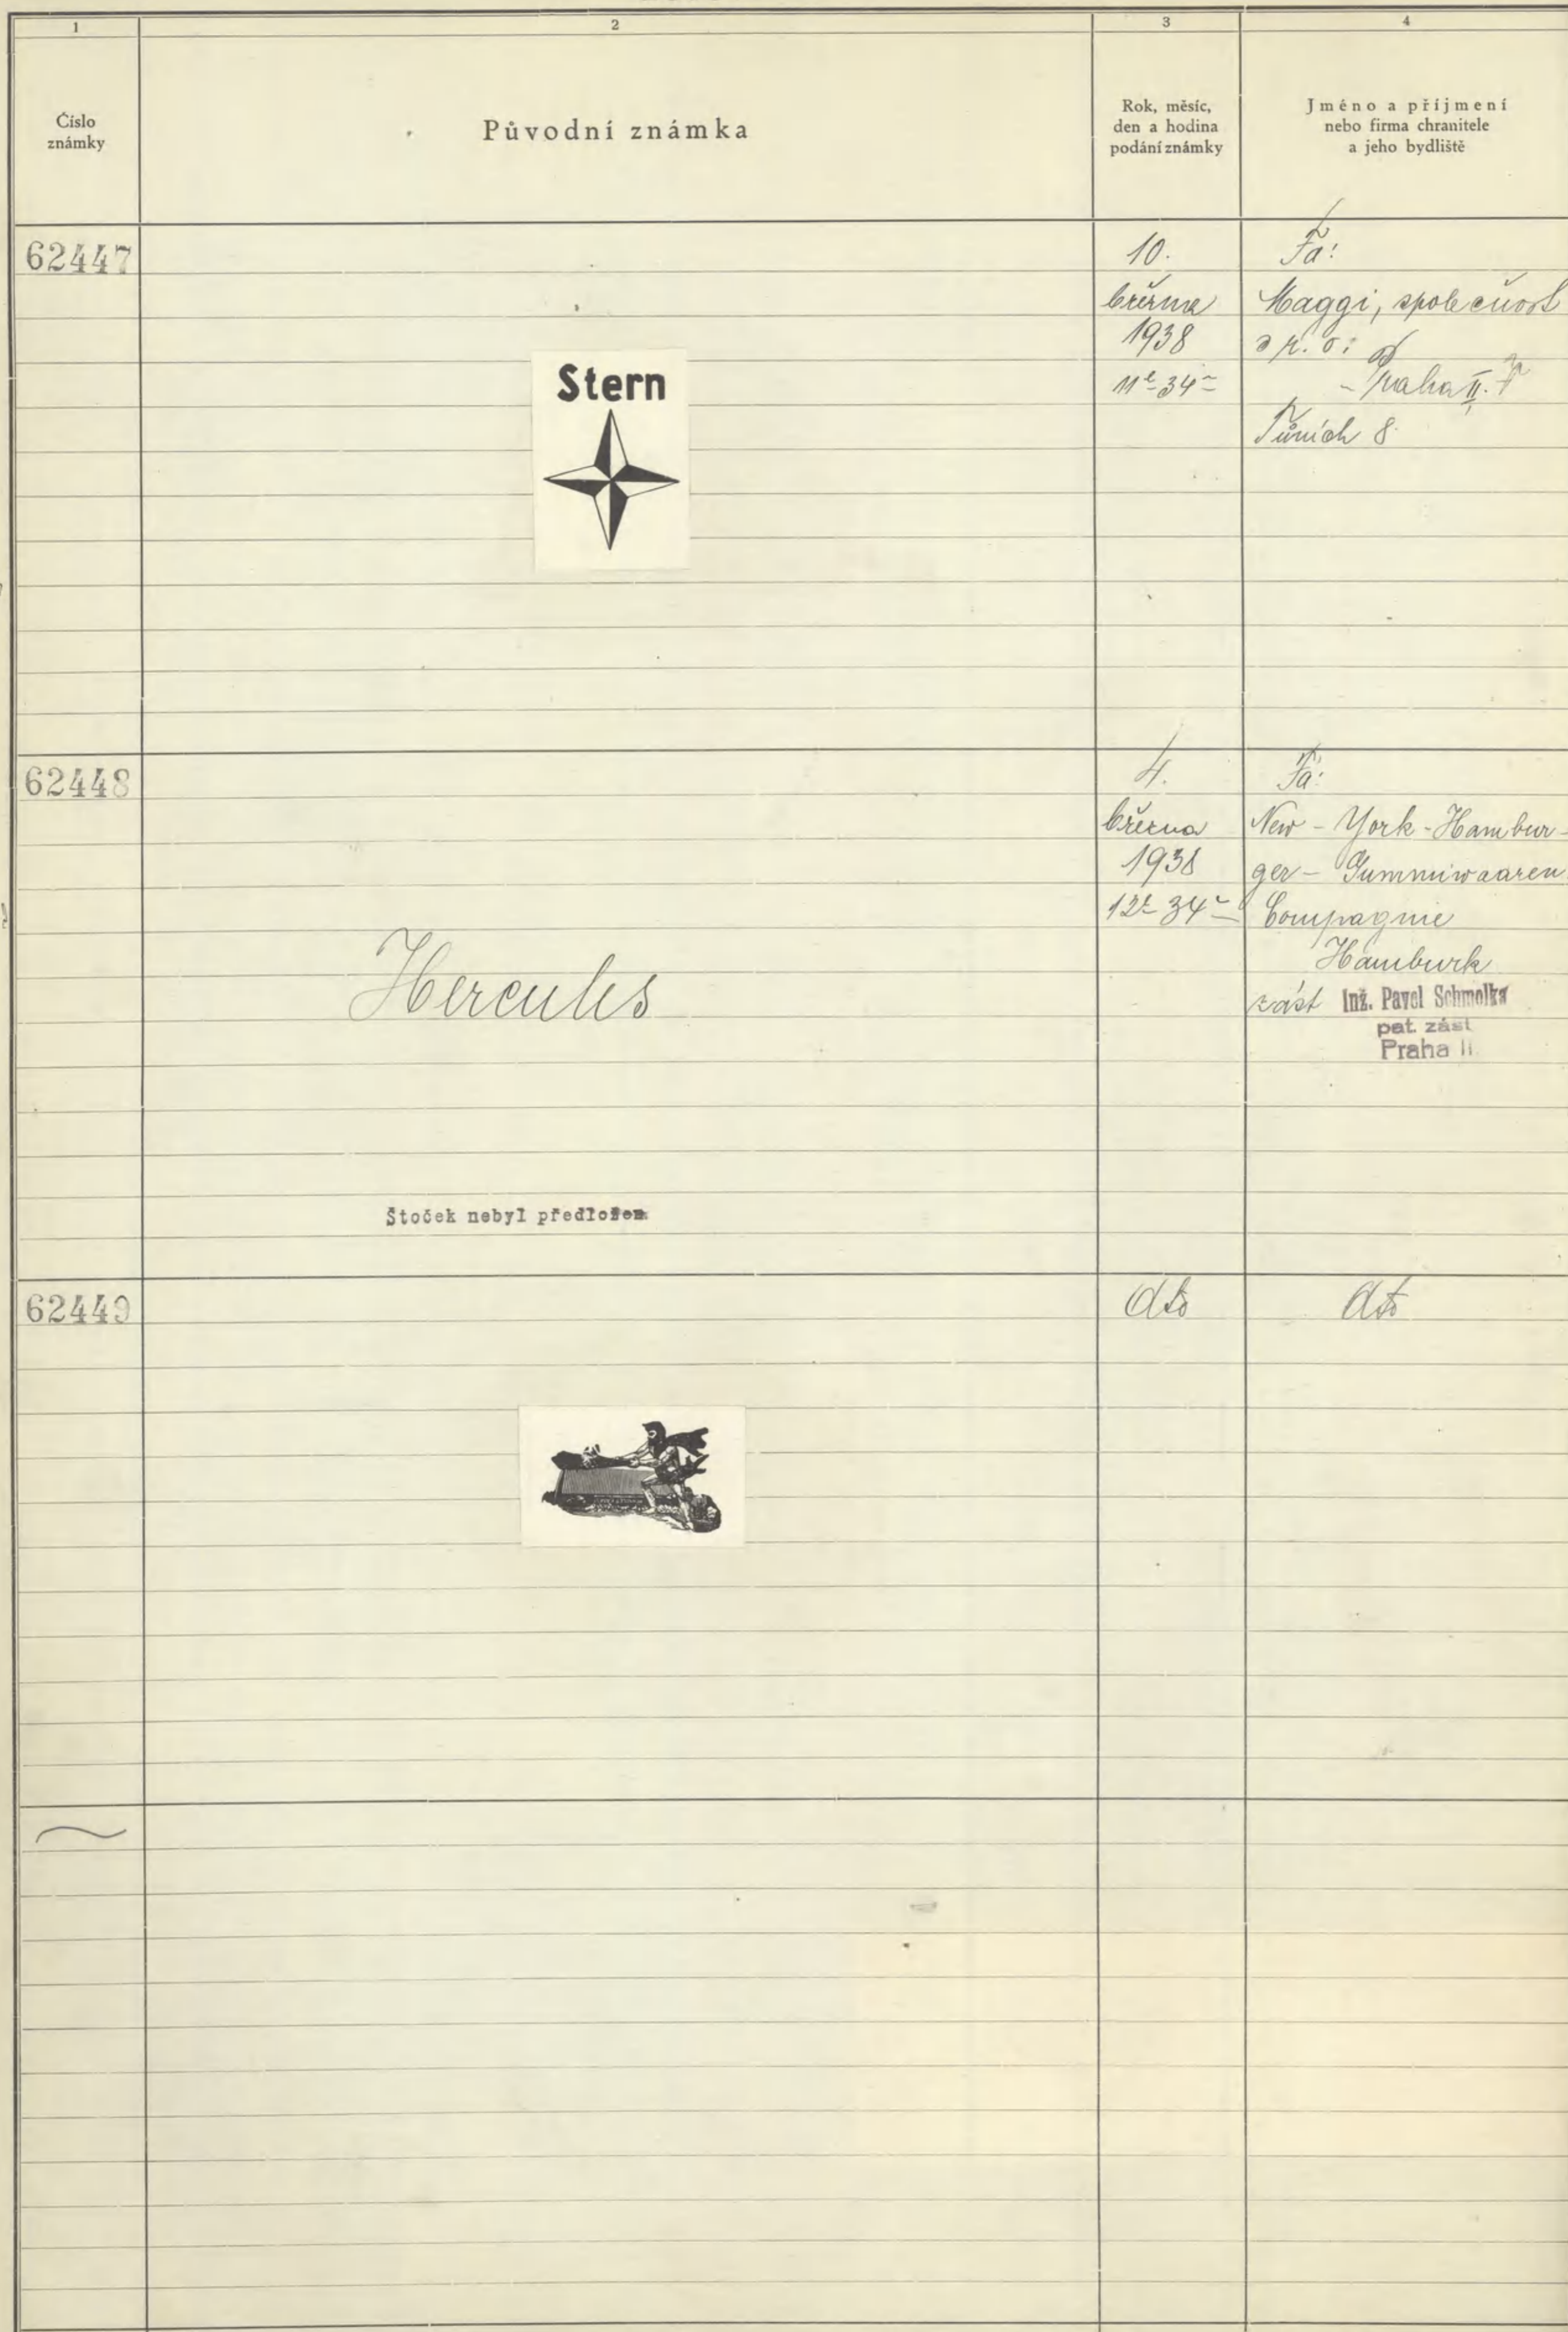 1
2
3
4
Číslo
známky
Původní známka
Rok, měsíc,
den a hodina
podání známky
Jméno a příjmení
nebo firma chranitele
a jeho bydliště
62447
Stern
10.
března
1938
11h 34m
Fa:
Maggi, společnost
s r. o.
Praha II.
Tůních 8.
62448
Hercules
Štoček nebyl předložen
4.
března
1938
12h 34m
Fa:
New-York-Hambur-
ger-Gummiwaaren
Compagnie
Hamburk
zást Inž. Pavel Schmolka
pat. zást
Praha II
62449
dto
dto